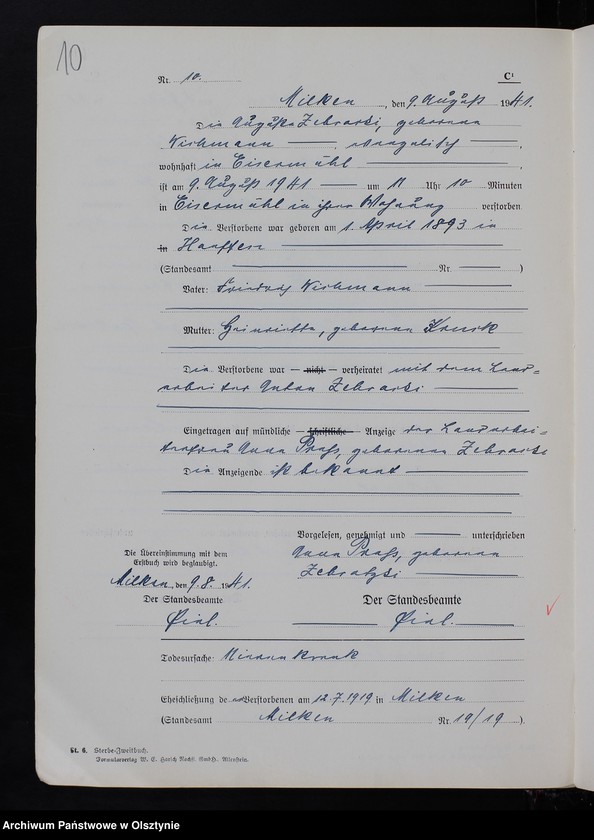 10
Nr. 10. C¹
Milken, den 9. August 1941.
Die Auguste Zebrarski, geborene
Kirchmann, evangelisch
wohnhaft in Eisermühl
ist am 9. August 1941 um 11 Uhr 10 Minuten
in Eisermühl in ihrer Wohnung verstorben
Die Verstorbene war geboren am 1. April 1893 in
in Hanffen
(Standesamt Nr. )
Vater: Friedrich Kirchmann
Mutter: Heinriette, geborene Kruck
Die Verstorbene war — nicht — verheiratet mit dem Land=
arbeiter Anton Zebrarski
Eingetragen auf mündliche — schriftliche — Anzeige der Landarbei=
terfrau Anna Prass, geborene Zebrarski
Die Anzeigende ist bekannt
Vorgelesen, genehmigt und unterschrieben
Anna Prass, geborene
Zebratzki
Die Übereinstimmung mit dem
Erstbuch wird beglaubigt.
Milken, den 9.8. 1941.
Der Standesbeamte Der Standesbeamte
Todesursache: Nierenkrank
Eheschließung de Verstorbenen am 12.7.1919 in Milken
(Standesamt Milken Nr. 19/19).
St. 6. Sterbe-Zweitbuch.
Formularverlag W. E. Harich Nachf. GmbH. Allenstein.
Archiwum Państwowe w Olsztynie